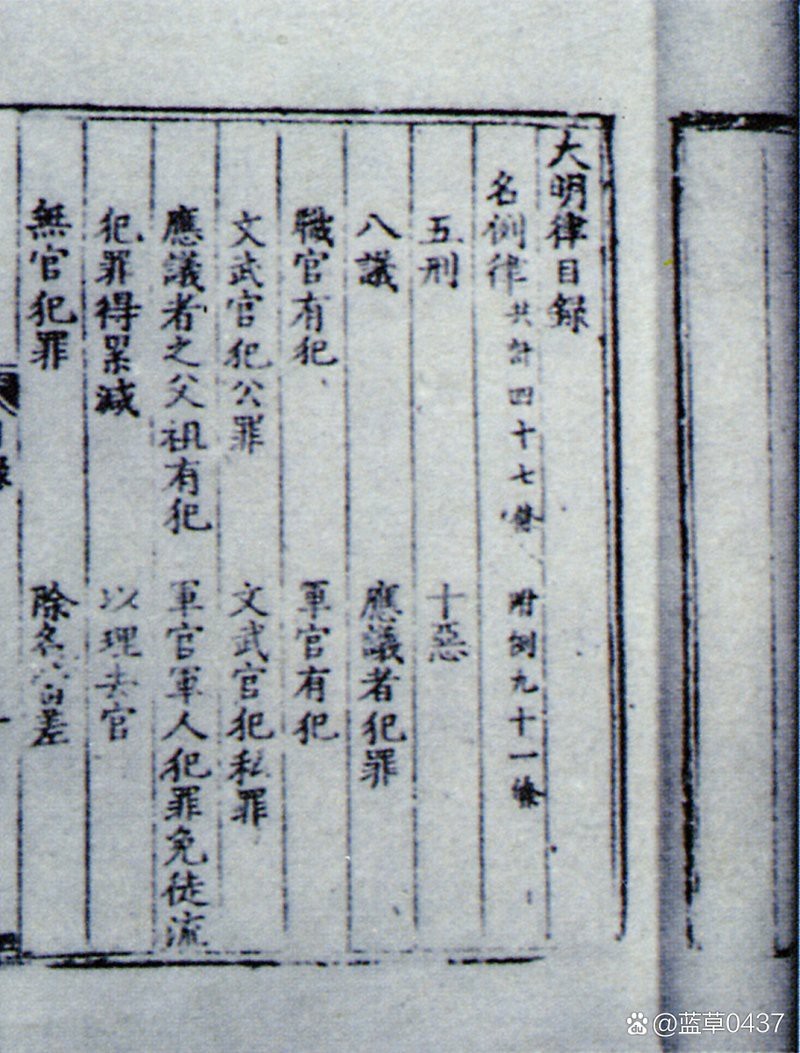 大明律目錄
名例律 共計四十七條 附例九十一條
五刑 十惡
八議 應議者犯罪
職官有犯 軍官有犯
文武官犯公罪 文武官犯私罪
應議者之父祖有犯 軍官軍人犯罪免徒流
犯罪得累減 以理去官
無官犯罪 除名當差
@蓝草0437